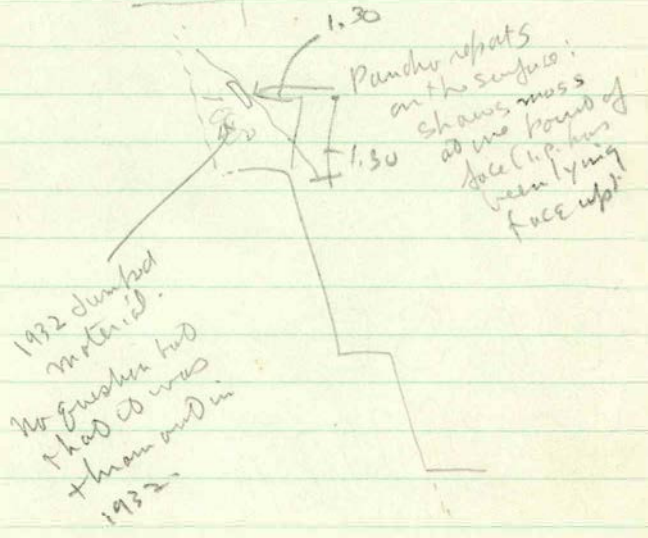 1.30
Pancho reports
on the surface:
shows moss
at one point of
face (i.e. has
been lying
face up).
1.30
1932 dumped
material.
No question but
that it was
thrown out in
1932.